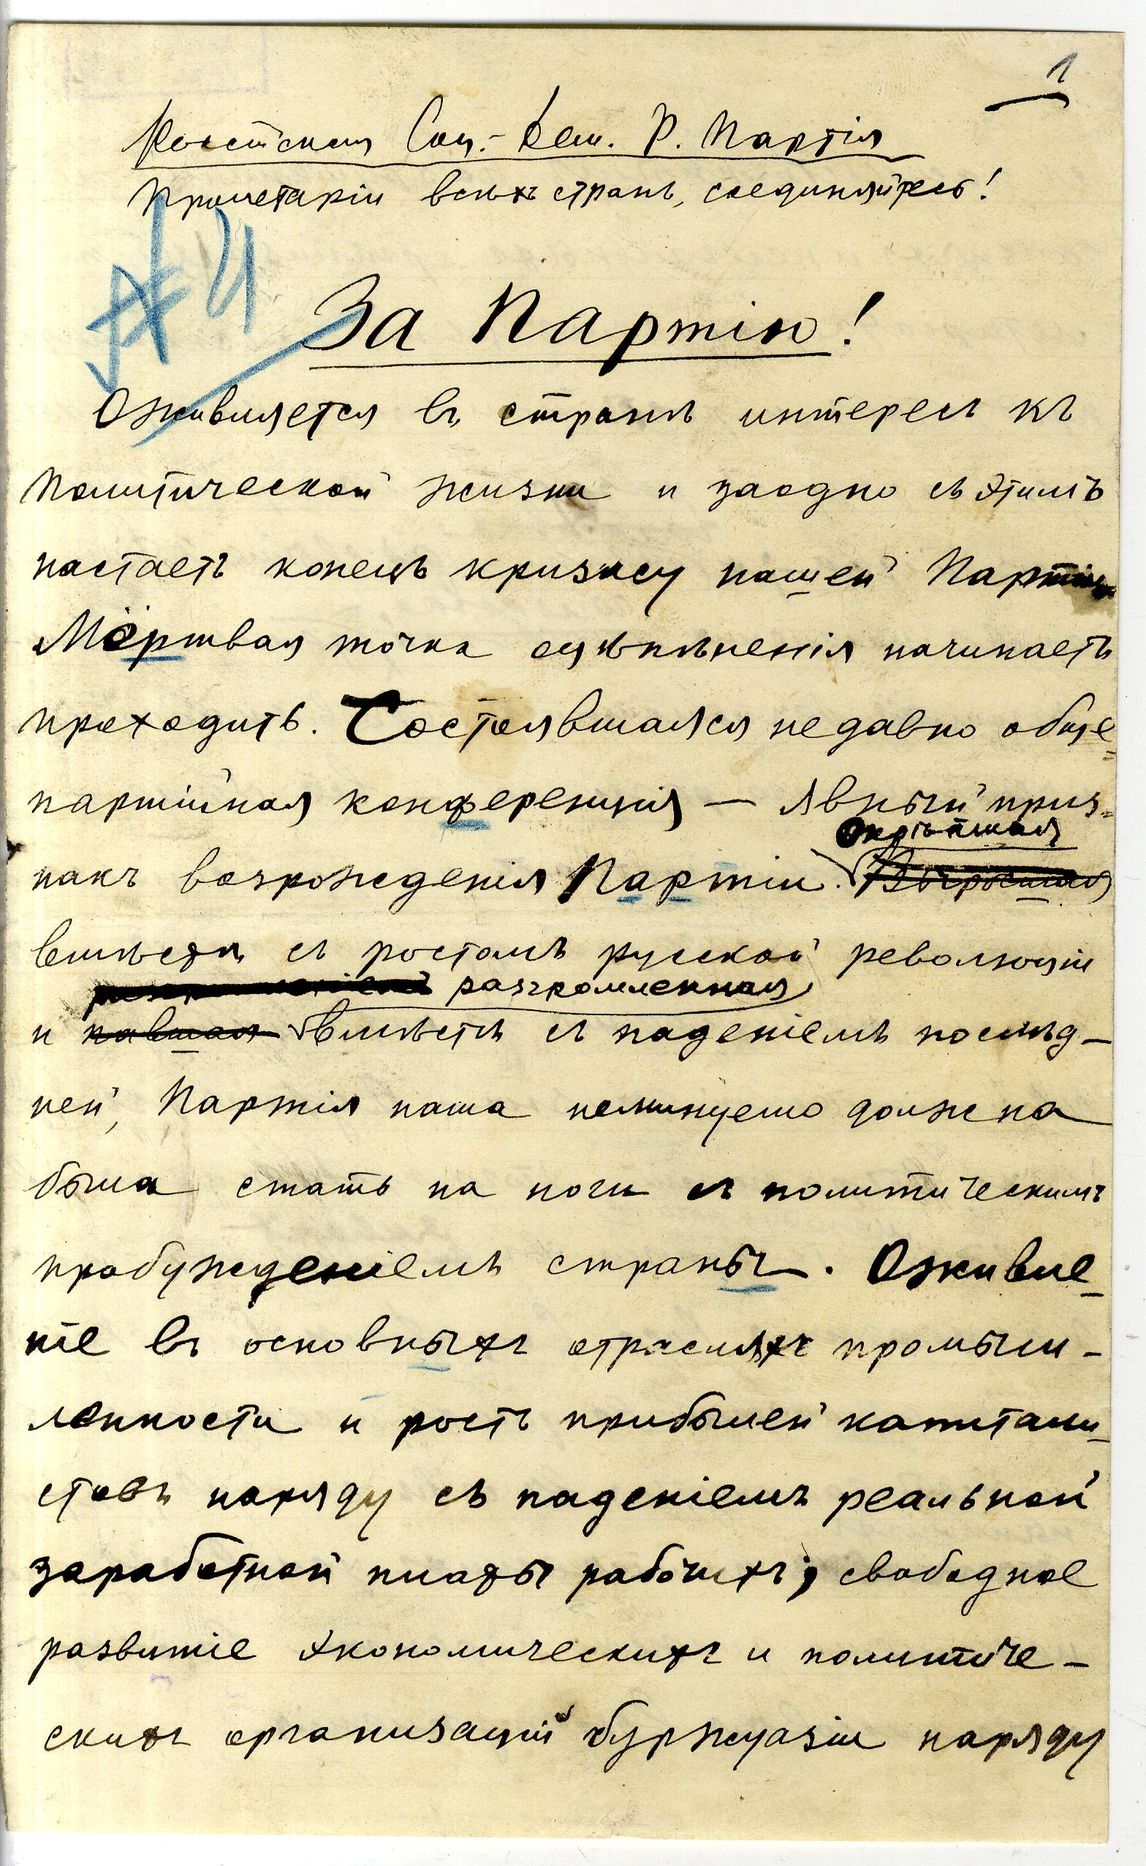 1
Россiйская Соц.-Дем. Р. Партiя
Пролетарiи всѣхъ странъ, соединяйтесь!
№ 21
За Партiю!
Оживляется въ странѣ интересъ къ
политической жизни и заодно съ этимъ
настаетъ конецъ кризису нашей Партiи.
Мёртвая точка оцѣпѣненiя начинаетъ
проходить. Состоявшаяся недавно обще-
партiйная конференцiя — явный приз-
Окрѣпшая
накъ возрожденiя Партiи. Выросшая
вмѣстѣ съ ростомъ русской революцiи
разгромленная
и павшая вмѣстѣ съ паденiемъ послѣд-
ней, Партiя наша неминуемо должна
была стать на ноги съ политическимъ
пробужденiемъ страны. Оживле-
нiе въ основныхъ отрасляхъ промыш-
ленности и ростъ прибылей капитали-
стовъ наряду съ паденiемъ реальной
заработной платы рабочихъ; свободное
развитiе экономическихъ и политиче-
скихъ организацiй буржуазiи наряду